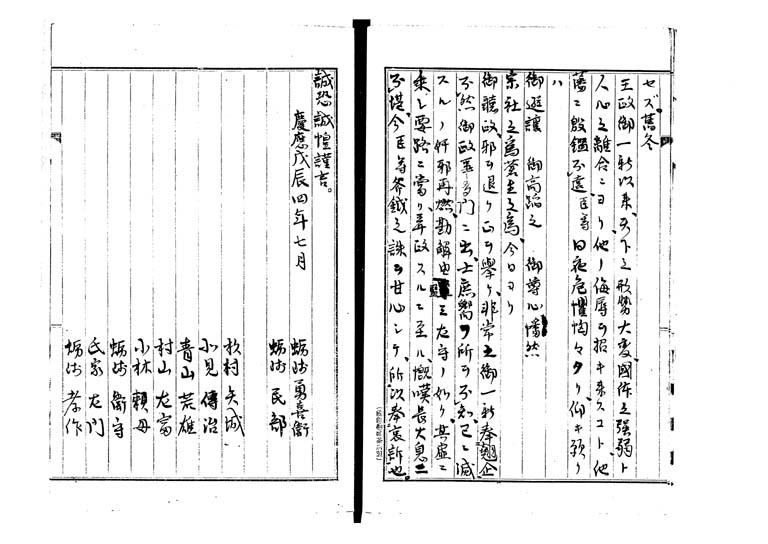 セズ、舊冬
王政御一新以来、天下之形勢大変、國体之強弱ト
人心之離合ニヨリ、他ノ侮辱ヲ招キ来スコト、他
藩ニ殷鑑不遠、臣等日夜危懼恟々タリ、仰キ願ク
ハ
御遜譲 御高蹈之 御尊心幡然
宗社之為蒼生之為、今日ヨリ
御聴政、邪ヲ退ケ正ヲ擧ケ、非常之御一新奉翹企
不然御政事多門ニ出、士庶嚮フ所ヲ不知、已ニ滅
スルノ奸邪再燃、勘解由 三左守ノ如り、其虚ニ
乗シ要路ニ當リ、弄政スルニ至ル、慨嘆長大息ニ
不堪、今臣等斧鉞之誅ヲ甘心シテ所以奉哀訴也。
誠恐誠惶謹言。
慶應戊辰四年七月
蛎崎勇喜衛
蛎崎民部
松村矢城
小見傳治
青山荒雄
村山左富
小林頼母
蛎崎衛守
氏家左門
蛎崎孝作